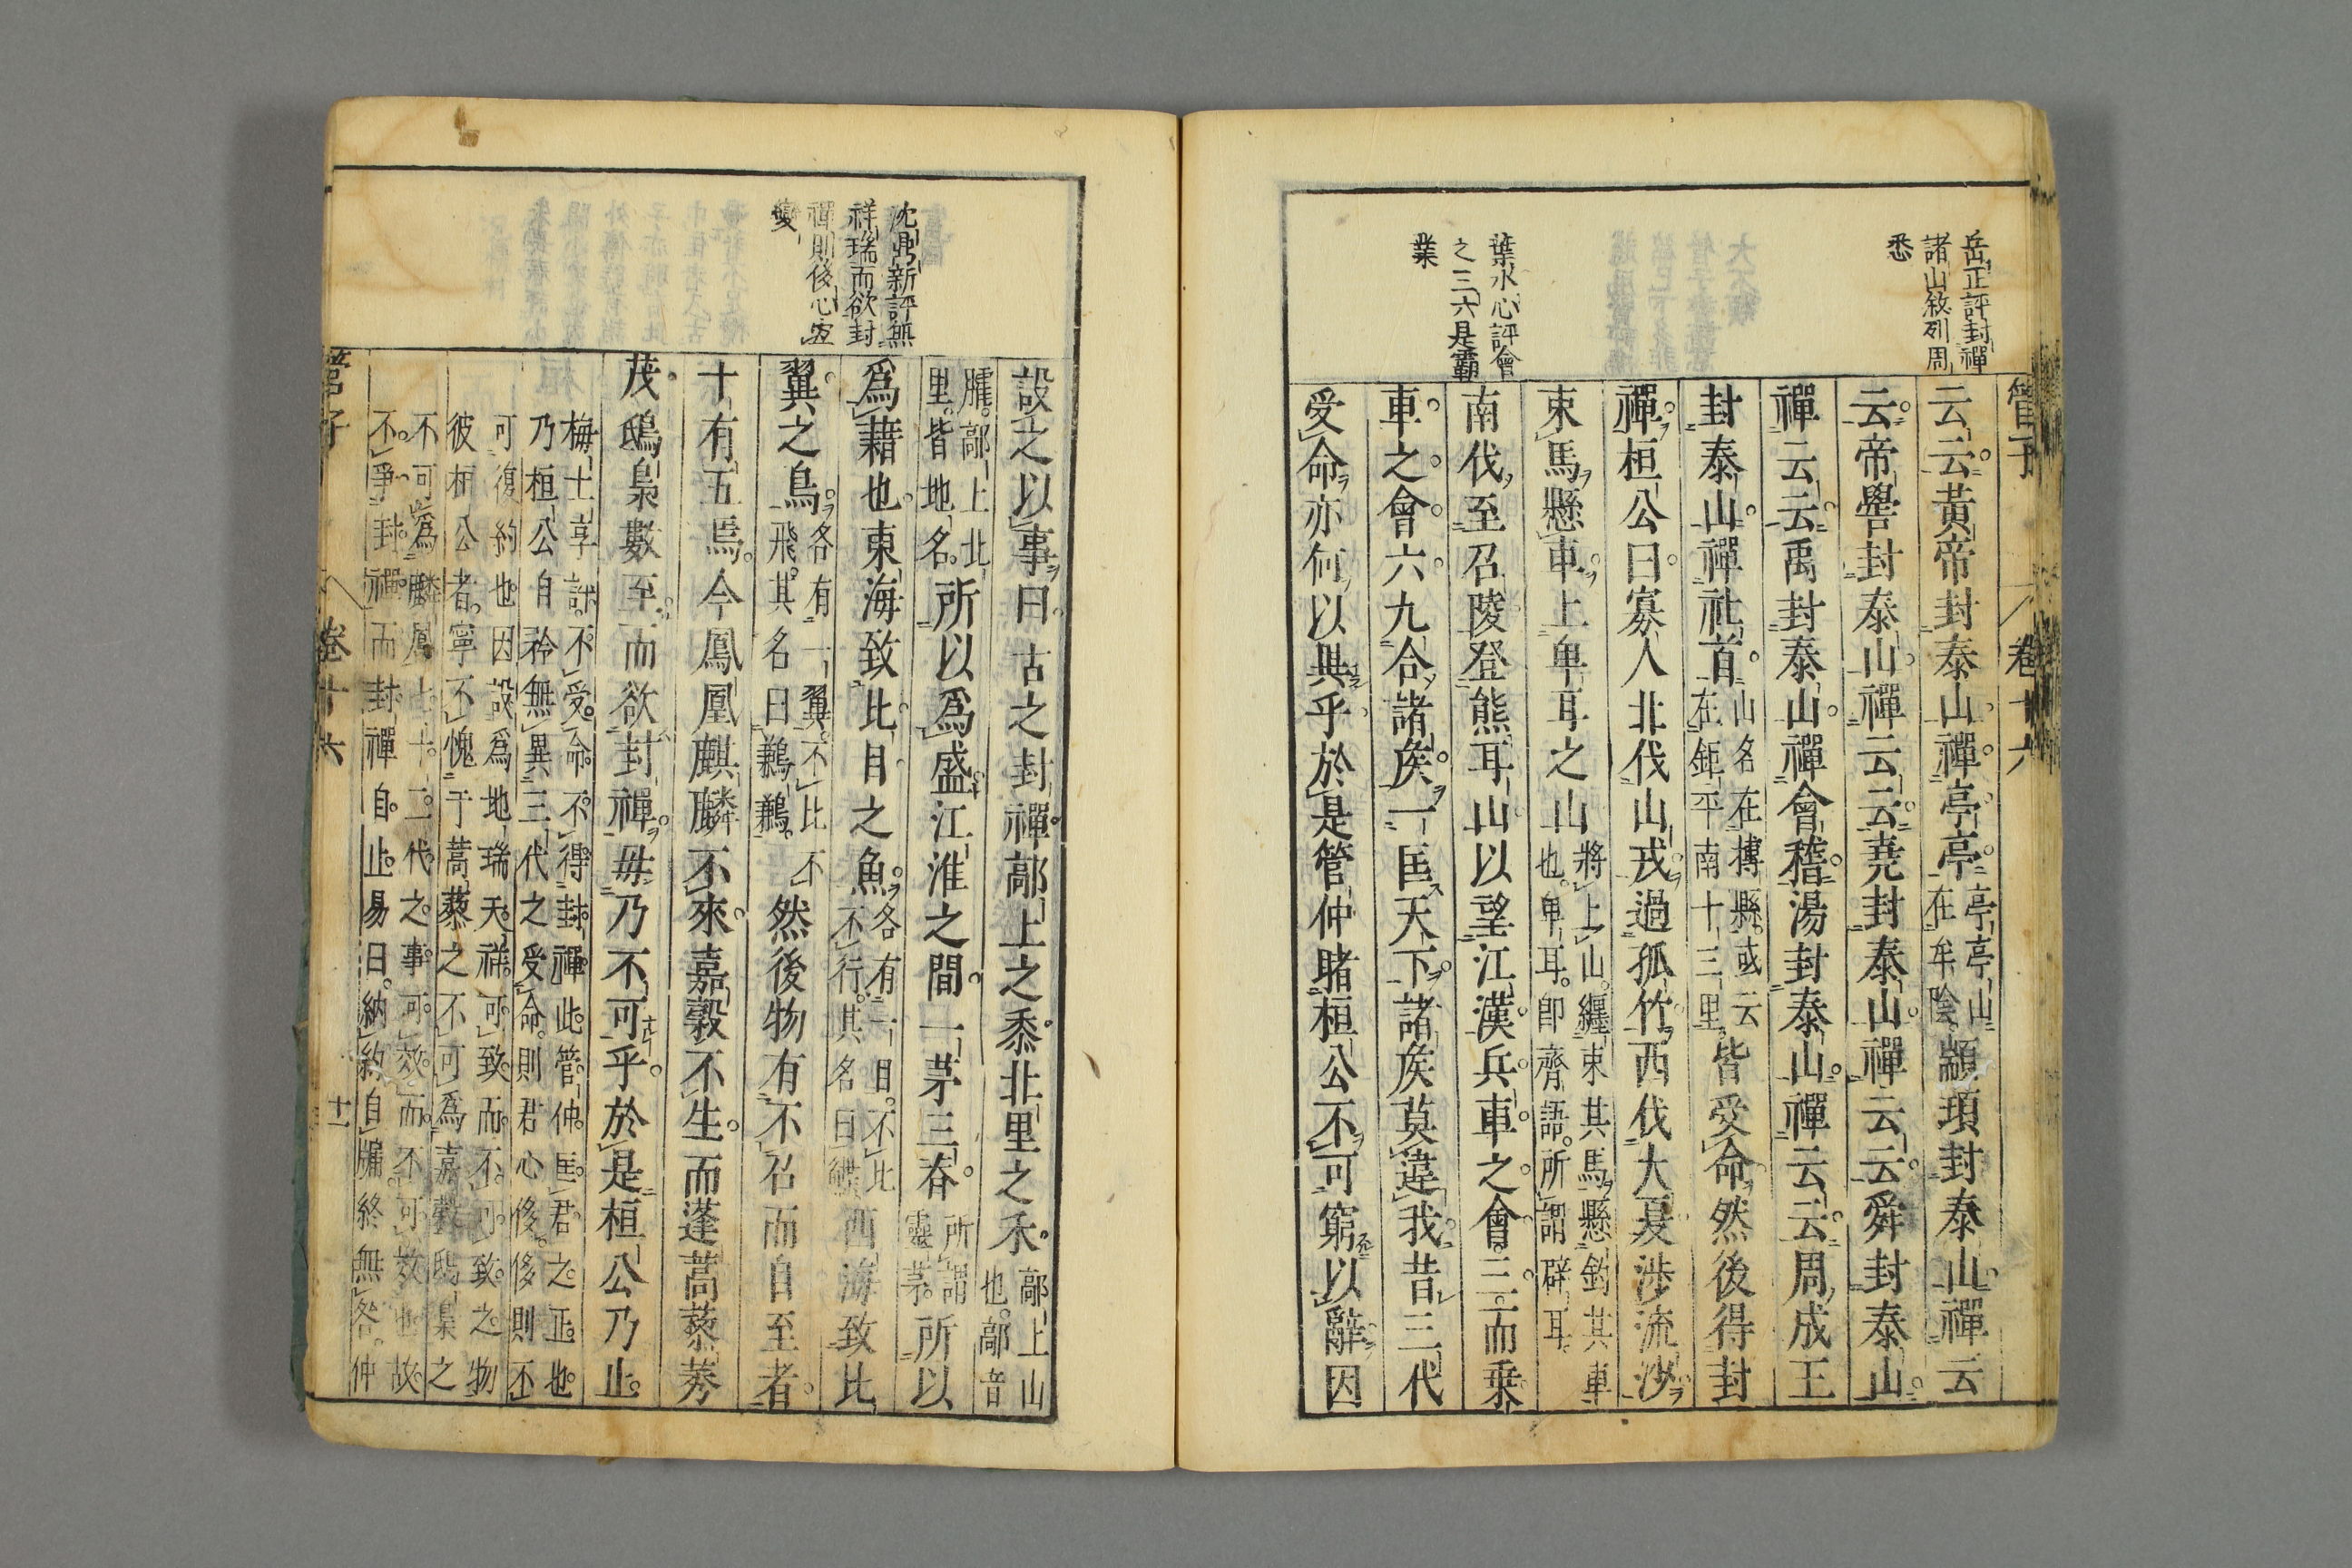 管子
卷十六
岳正評封禪
諸山敘列周
悉
葉水心評會
之三六是霸
業
云云黃帝封泰山禪亭亭亭亭山在牟陰顓頊封泰山禪云
云帝嚳封泰山禪云云堯封泰山禪云云舜封泰山
禪云云禹封泰山禪會稽湯封泰山禪云云周成王
封泰山禪社首山名在摶縣或云在鉅平南十三里皆受命然後得封
禪桓公曰寡人北伐山戎過孤竹西伐大夏涉流沙
束馬懸車上卑耳之山將上山纏束其馬懸鈎其車也卑耳卽齊語所謂辟耳
南伐至召陵登熊耳山以望江漢兵車之會三而乘
車之會六九合諸矦一匡天下諸矦莫違我昔三代
受命亦何以異乎於是管仲睹桓公不可窮以辭因
沈鼎新評無
祥瑞而欲封
禪則侈心宜
變
設之以事曰古之封禪鄗上之黍北里之禾鄗上山也鄗音
臛鄗上北里皆地名所以爲盛江淮之間一茅三脊所謂靈茅所以
爲藉也東海致比目之魚各有一目不比不行其名曰鰈西海致比
翼之鳥各有一翼不比不飛其名曰鶼鶼然後物有不召而自至者
十有五焉今鳳凰麒麟不來嘉穀不生而蓬蒿藜莠
茂鴟梟數至而欲封禪毋乃不可乎於是桓公乃止
梅士享評不受命不得封禪此管仲匡君之正也
乃桓公自矜無異三代之受命則君心侈侈則不
可復約也因設爲地瑞天祥可致而不可致之物
彼桓公者寧不愧于蒿藜之不可爲嘉穀鴟梟之
不可爲麟鳳七十二代之事可效而不可效也故
不爭封禪而封禪自止易曰納約自牖終無咎仲
管子
卷十六
十一